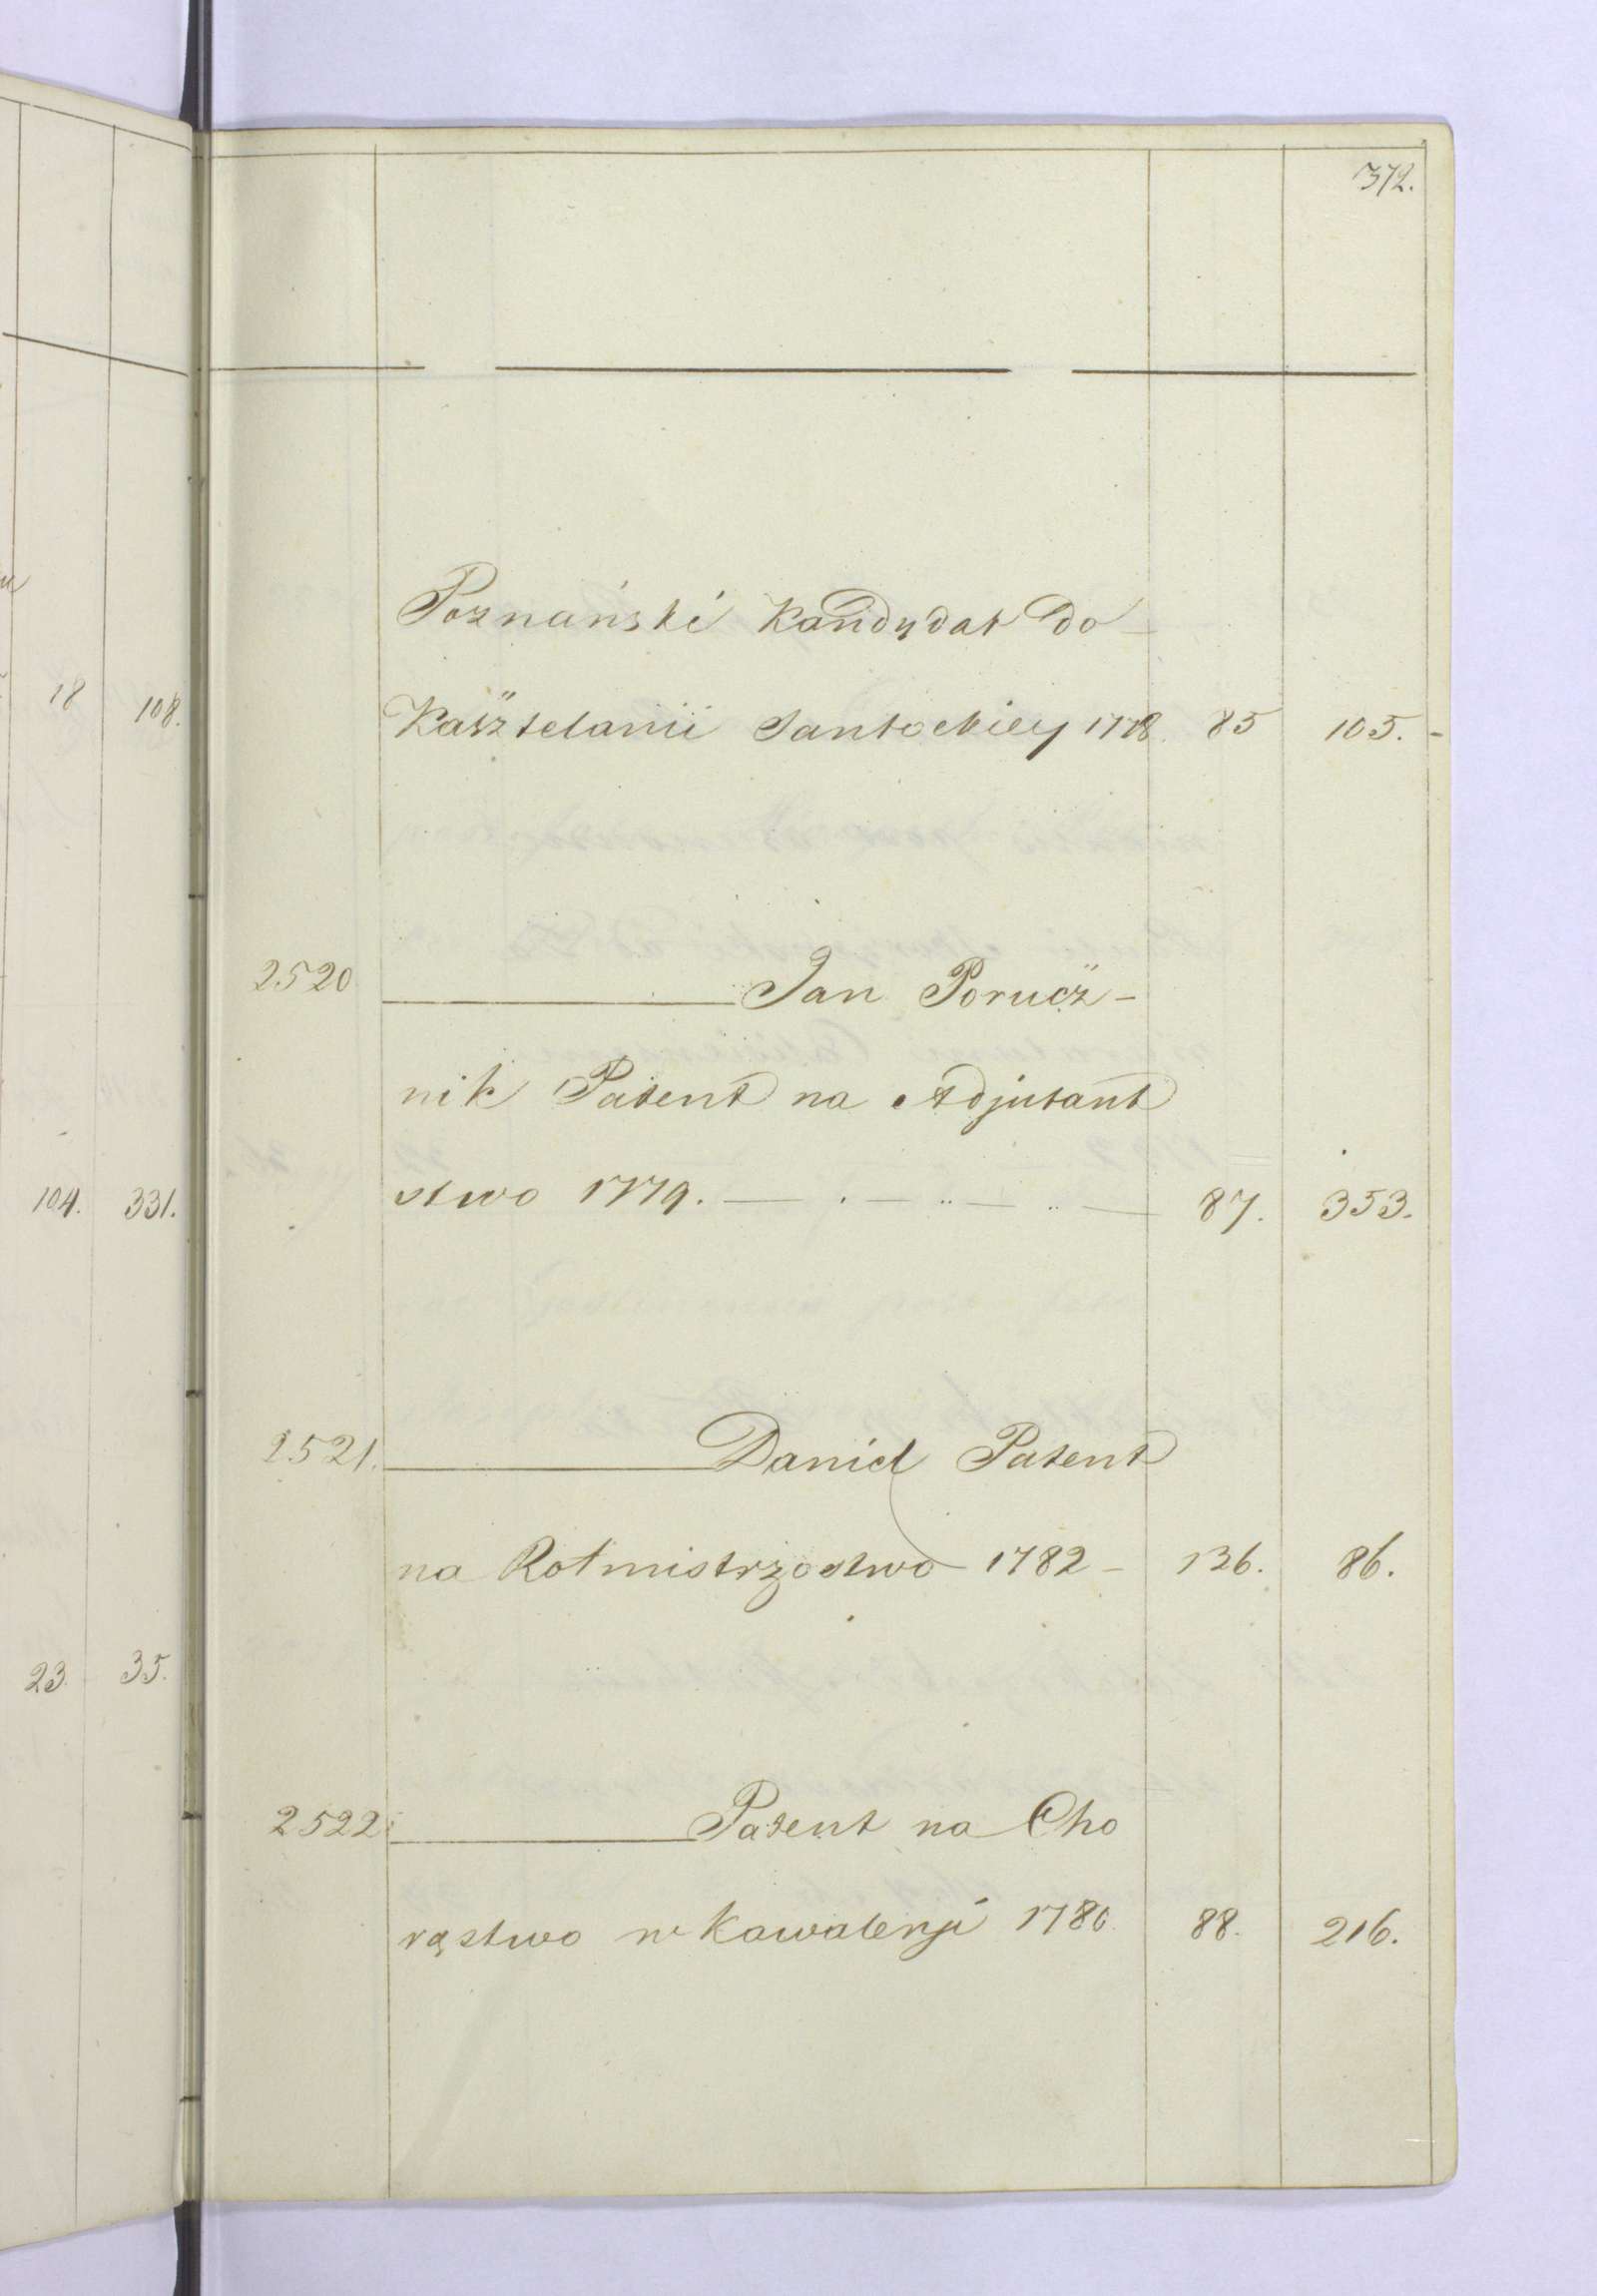 372.
Poznański Kandydat do
Kasztelanii Santockiey 1778. 85 105. -
2520 Jan Porucz-
nik Patent na Adjutant
stwo 1779. 87. 353.
2521. Daniel Patent
na Rotmistrzostwo 1782 - 136. 86.
2522 Patent na Cho
rąstwo w Kawaleryi 1780. 88. 216.
18 108.
104. 331.
23 35.